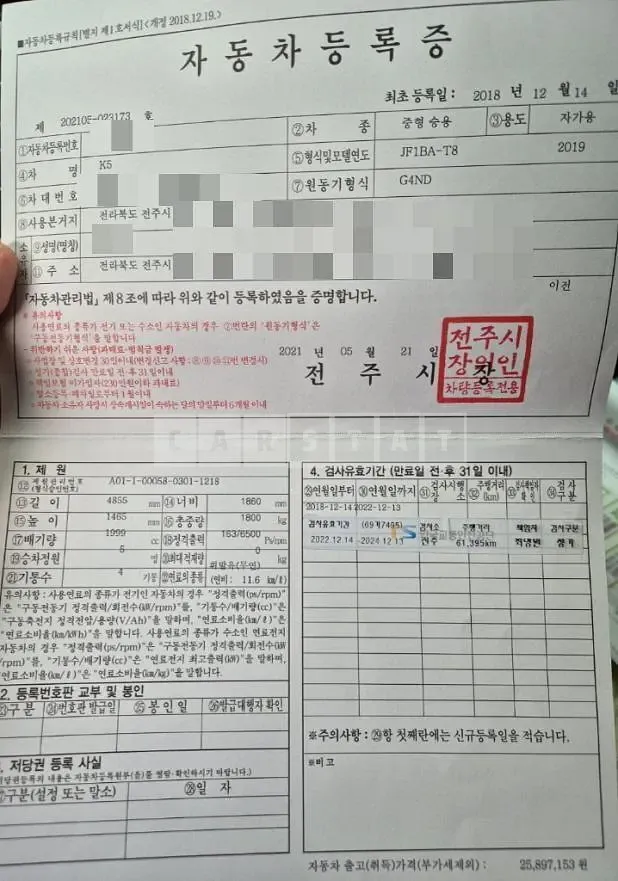 ■자동차등록규칙[별지 제1호서식]<개정 2018.12.19.>
자동차등록증
최초등록일: 2018 년 12 월 14 일
제 202105-023173 호
①자동차등록번호 ②차 종 중형 승용 ③용도 자가용
④차 명 K5 ⑤형식및모델연도 JF1BA-T8 2019
⑥차대번호 ⑦원동기형식 G4ND
⑧사용본거지 전라북도 전주시
소유자 ⑨성명(명칭)
⑪주 소 전라북도 전주시
이전
「자동차관리법」 제8조에 따라 위와 같이 등록하였음을 증명합니다.
※ 유의사항
사용연료의 종류가 전기 또는 수소인 자동차의 경우 ⑦번란의 '원동기형식'은
'구동전동기형식'을 말합니다.
- 위반하기 쉬운 사항(과태료·범칙금 발생)
2021 년 05 월 21 일
전 주 시 장
전주시
장원인
차량등록전용
CARSTAT
1. 제 원
⑫제원관리번호 (형식승인번호) A01-1-00058-0301-1218
⑬길이 4855 mm ⑭너비 1860 mm
⑮높이 1465 mm ⑯총중량 1800 kg
⑰배기량 1999 cc ⑱정격출력 163/6500 Ps/rpm
⑲승차정원 5 명 ⑳최대적재량 0 kg
㉑기통수 4 기통 ㉒연료의종류 휘발유(무연) (연비: 11.6 km/ℓ)
유의사항: 사용연료의 종류가 전기인 자동차의 경우 "정격출력(ps/rpm)"
은 "구동전동기 정격출력/회전수(kW/rpm)"를, "기통수/배기량(cc)"은
"구동축전지 정격전압/용량(V/Ah)"을 말하며, "연료소비율(km/ℓ)"은
"연료소비율(km/kWh)"을 말합니다. 사용연료의 종류가 수소인 연료전지
자동차의 경우 "정격출력(ps/rpm)"은 "구동전동기 정격출력/회전수(kW
/rpm)"를, "기통수/배기량(cc)"은 "연료전지 최고출력(kW)"을 말하며,
"연료소비율(km/ℓ)"은 "연료소비율(km/kg)"을 말합니다.
2. 등록번호판 교부 및 봉인
㉓구분 ㉔번호판 발급일 ㉕봉인일 ㉖발급대행자 확인
3. 저당권 등록 사실
㉗구분(설정 또는 말소) ㉘일 자
4. 검사유효기간 (만료일 전·후 31일 이내)
㉙연월일부터 ㉚연월일까지 ㉛검사시행장소 ㉜주행거리(km) ㉝ 확인 ㉞검사구분
2018-12-14 2022-12-13
검사유효기간 (69거7495) 검사소 주행거리 책임자 검사구분
2022.12.14 -2024.12.13 전주 61,395km
※주의사항: ㉙항 첫째란에는 신규등록일을 적습니다.
※비고
자동차 출고(취득)가격(부가세제외): 25,897,153 원